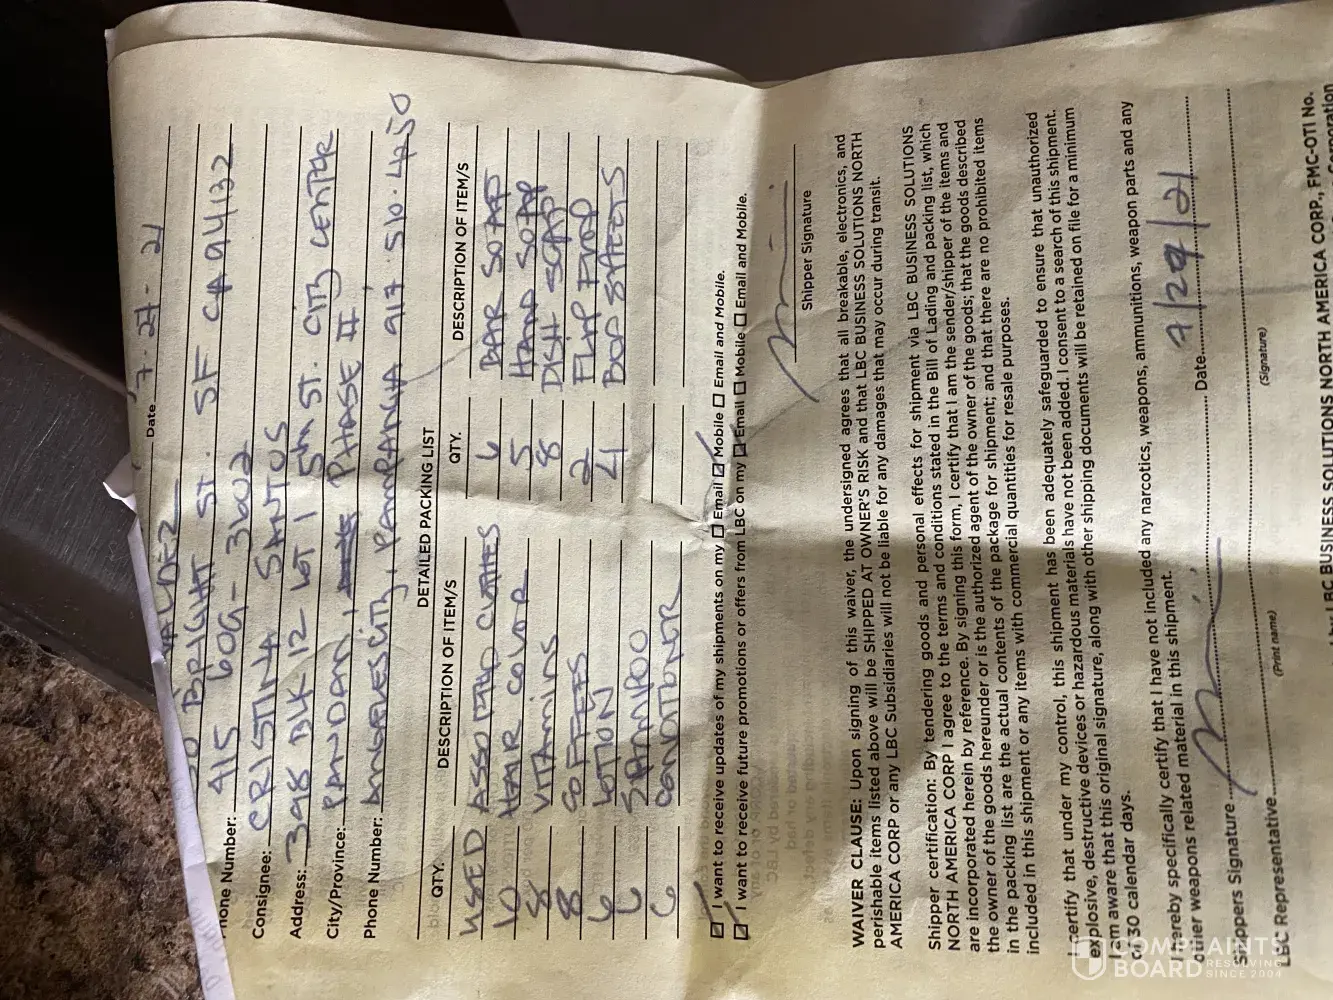 Date 7-29-21
VALDEZ
BRIGHT ST. SF CA 94132
hone Number: 415 606-3602
Consignee: CRISTINA SANTOS
Address: 398 BLK 12 LOT 1 5th ST. CITY CENTER
City/Province: PANDAN, PHASE II
Phone Number: ANGELES CITY, PAMPANGA 917.510.4250
DETAILED PACKING LIST
QTY. DESCRIPTION OF ITEM/S QTY. DESCRIPTION OF ITEM/S
USED ASSORTED CLOTHES 6 BAR SOAP
10 HAIR COLOR 5 HAND SOAP
8 VITAMINS 8 DISH SOAP
8 COFFEES 2
6 LOTION 4 BED SHEETS
6 SHAMPOO
6 CONDITIONER
I want to receive updates of my shipments on my Email Mobile Email and Mobile.
I want to receive future promotions or offers from LBC on my Email Mobile Email and Mobile.
Shipper Signature
WAIVER CLAUSE: Upon signing of this waiver, the undersigned agrees that all breakable, electronics, and
perishable items listed above will be SHIPPED AT OWNER'S RISK and that LBC BUSINESS SOLUTIONS NORTH
AMERICA CORP or any LBC Subsidiaries will not be liable for any damages that may occur during transit.
Shipper certification: By tendering goods and personal effects for shipment via LBC BUSINESS SOLUTIONS
NORTH AMERICA CORP I agree to the terms and conditions stated in the Bill of Lading and packing list, which
are incorporated herein by reference. By signing this form, I certify that I am the sender/shipper of the items and
the owner of the goods hereunder or is the authorized agent of the owner of the goods; that the goods described
in the packing list are the actual contents of the package for shipment; and that there are no prohibited items
included in this shipment or any items with commercial quantities for resale purposes.
certify that under my control, this shipment has been adequately safeguarded to ensure that unauthorized
explosive, destructive devices or hazardous materials have not been added. I consent to a search of this shipment.
I am aware that this original signature, along with other shipping documents will be retained on file for a minimum
of 30 calendar days.
hereby specifically certify that I have not included any narcotics, weapons, ammunitions, weapon parts and any
other weapons related material in this shipment.
Shippers Signature Date 7/29/21
LBC Representative (Print name) (Signature)
LBC BUSINESS SOLUTIONS NORTH AMERICA CORP., FMC-OTI No.
Corporation
COMPLAINTS
BOARD RESOLVING
SINCE 2004